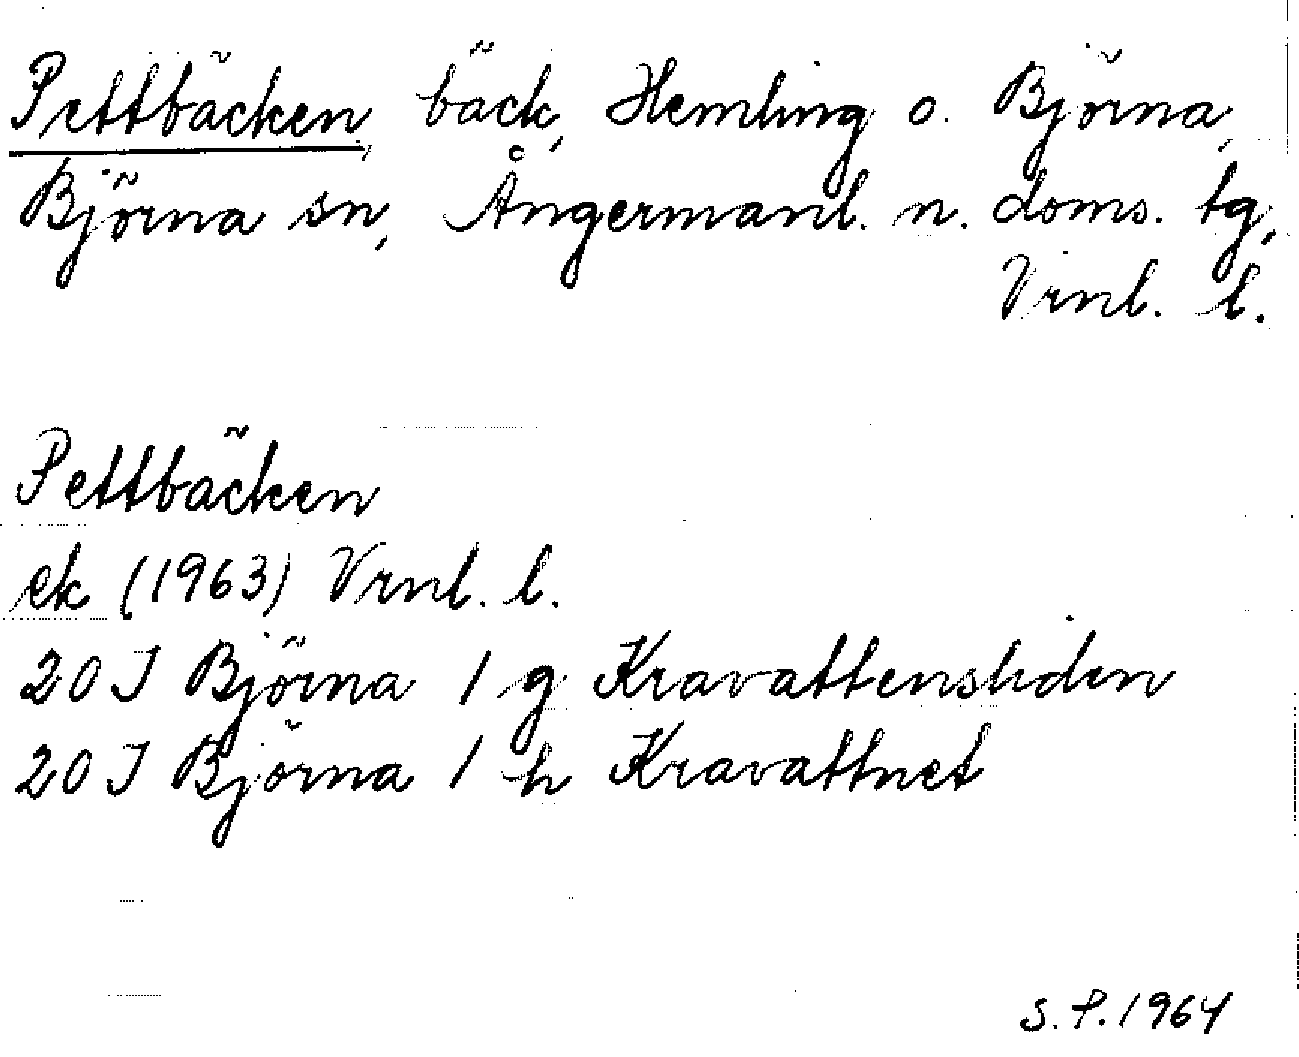 Pettbäcken, bäck, Hemling o. Björna,
Björna sn, Ångermanl. n. doms. tg,
Vrnl. l.
Pettbäcken
ek (1963) Vrnl. l.
20 J Björna 1 g Kravattensliden
20 J Björna 1 h Kravattnet
S. P. 1964